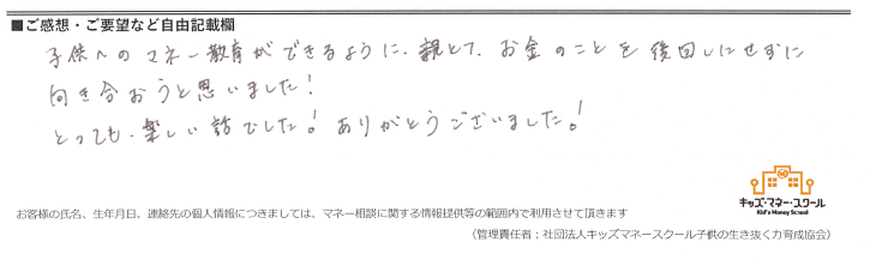 ■ご感想・ご要望など自由記載欄
子供へのマネー教育ができるように、親として、お金のことを後回しにせずに
向き合おうと思いました！
とっても、楽しい話でした！ありがとうございました！
キッズ・マネー・スクール
Kid's Money School
お客様の氏名、生年月日、連絡先の個人情報につきましては、マネー相談に関する情報提供等の範囲内で利用させて頂きます
（管理責任者：社団法人キッズマネースクール子供の生き抜く力育成協会）